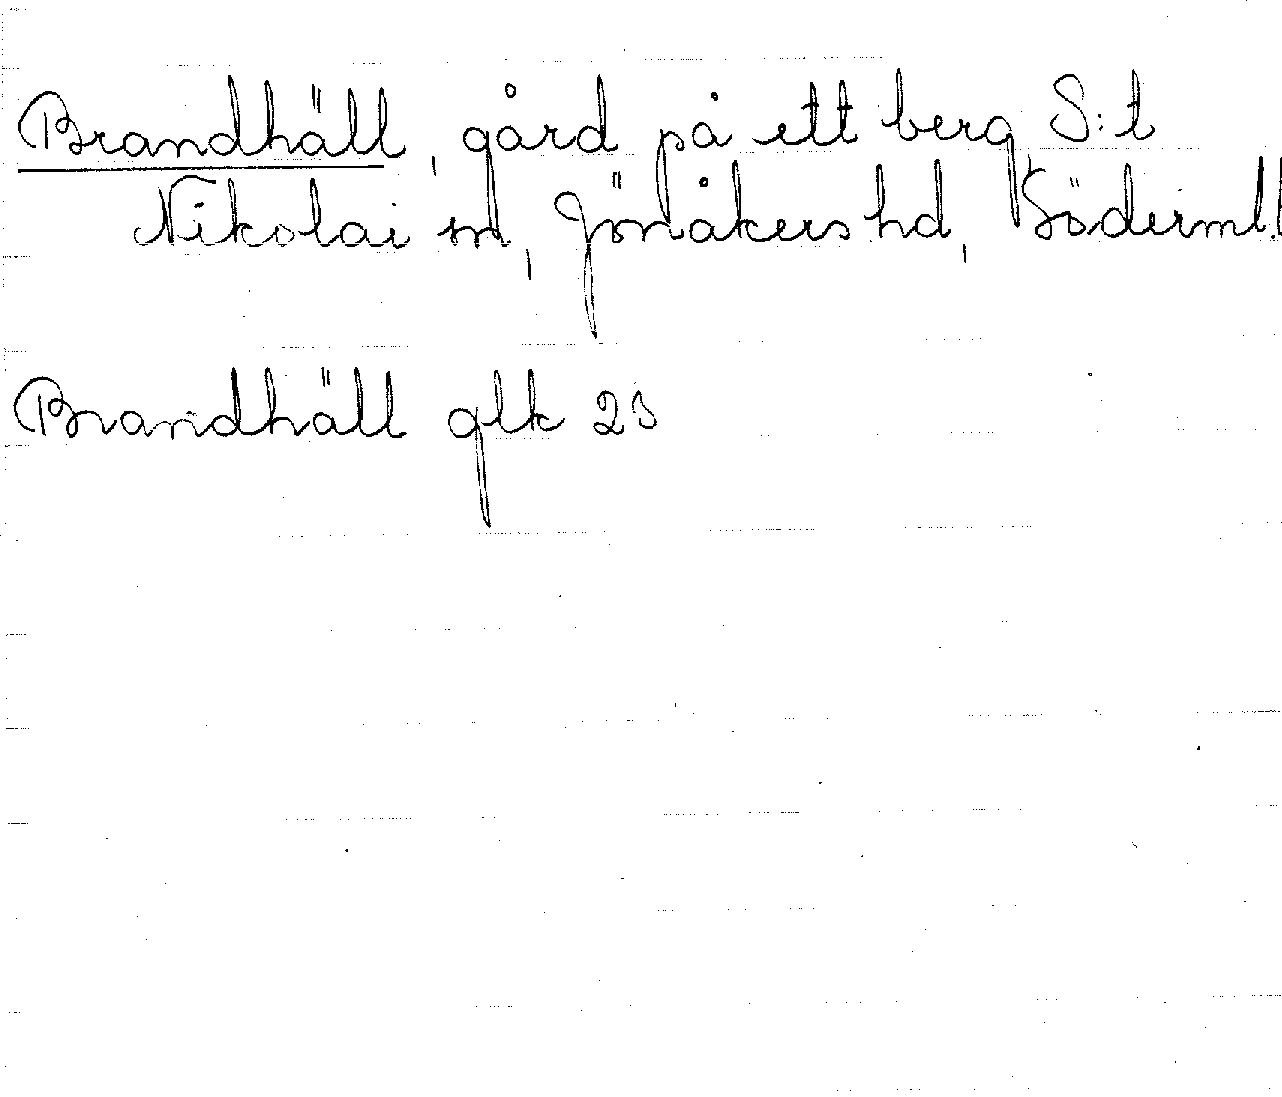 Brandhäll, gård på ett berg S:t
Nikolai sn, Jönåkers hd, Söderml.
Brandhäll glk 23